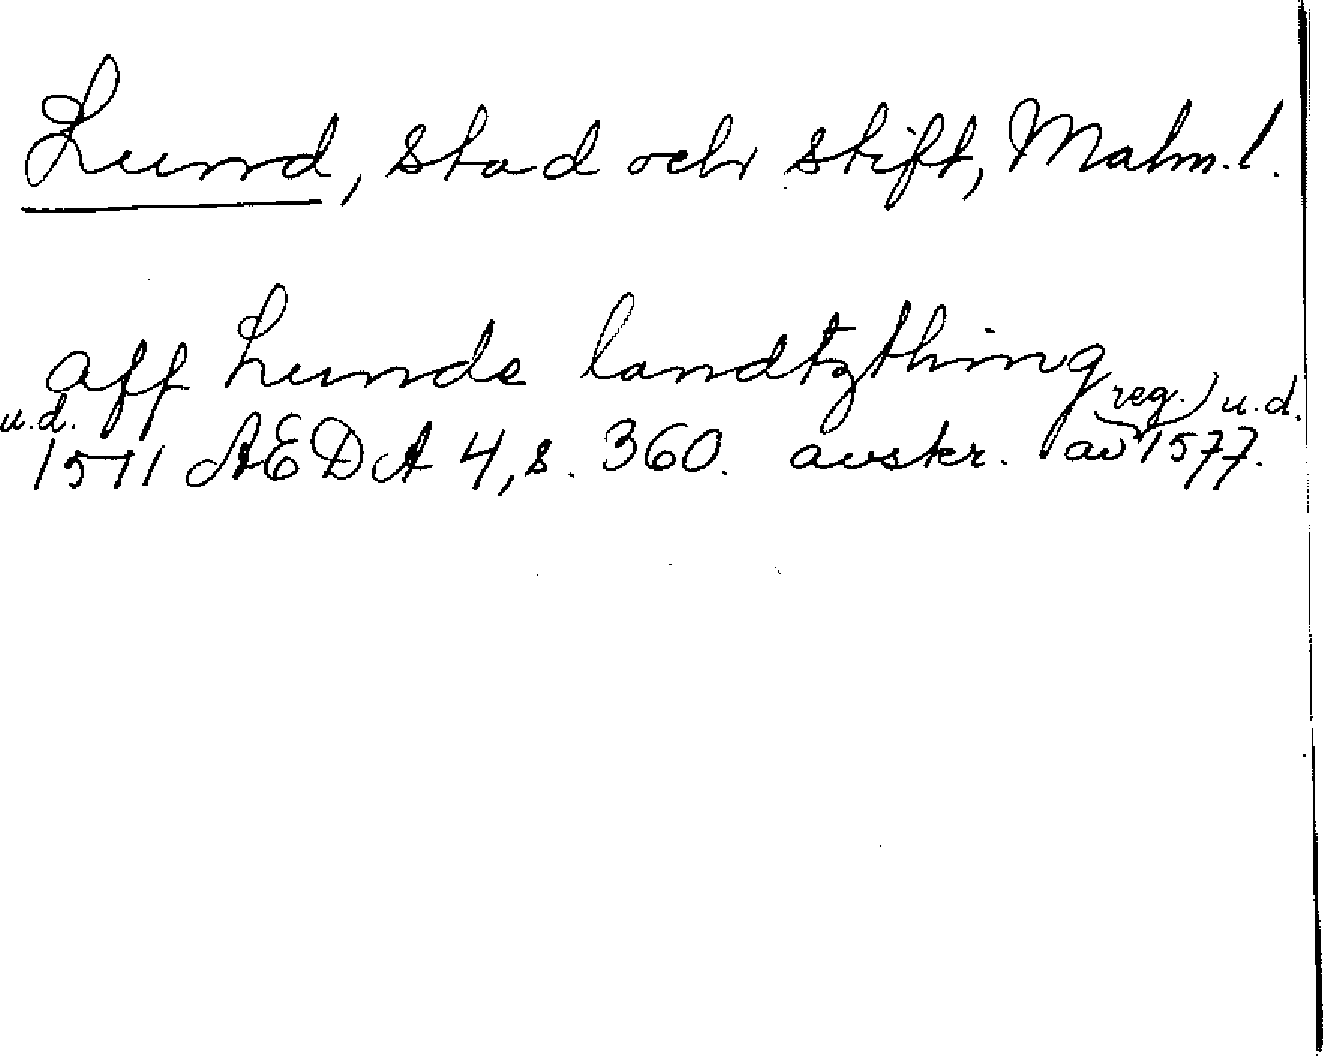 Lund, stad och stift, Malm.l.
aff Lunds landtzthing
u.d. 1511 AEDA 4, s. 360. avskr. av reg.) u.d. 1577.